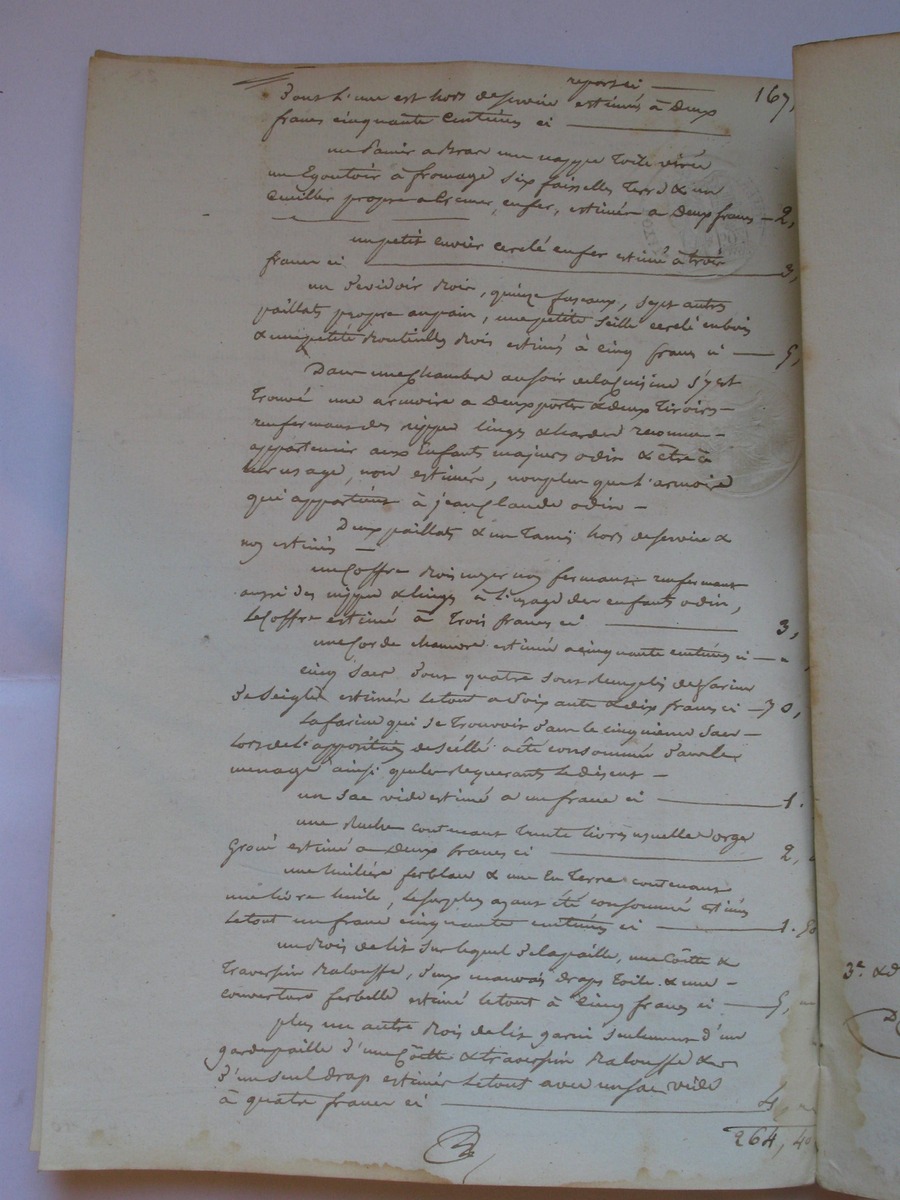 report ci — 167,
dont l'une est hors de service estimés à Deux
francs cinquante Centimes ci —
un Panier a Bras une nappe Toile cirée
un Egoutoir à fromage six faisselles Terre & un
Cuiller propre a Ecremer, en fer, estimés a Deux francs — 2,
un petit cuvier cerclé en fer estimé à trois
francs ci — 3,
un Devidoir Bois, quinze fuseaux, sept autres
paillats propre au pain, une petite seille cerclé en bois
& une petite Bois estimés à Cinq francs ci — 5,
Dans une Chambre au Soir de la Cuisine s'y est
Trouvé une armoire a Deux portes & deux Tiroirs —
renfermant des nippes linges & hardes reconnu —
appartenir aux Enfants majeurs odin & être à
leur usage, non estimés, non plus que l'armoire
qui appartient à jean Claude odin —
Deux paillats & un Tamis hors de service &
non estimés —
un Coffre Bois noyer non fermant renfermant
aussi des nippes & linges à l'usage des enfants odin,
le Coffre estimé à Trois francs ci — 3,
une Corde chanvre estimée a cinquante centimes ci —
cinq sacs dont quatre sont Remplis de farine
de Seigle estimés le tout a Soixante & dix francs ci — 70,
La farine qui se Trouvoit dans le cinquieme Sac —
lors de l'apposition de scéllé a été consommée dans le
menage ainsi que les requerants le disent —
un sac vide estimé a un franc ci — 1.
une Ruche contenant Trente livres usuelle d'orge
Grouè estimé a Deux francs ci — 2,
une huiliére ferblanc & une En Terre contenant
une livre huile, le surplus ayant été consommé estimés
le tout un franc cinquante centimes ci — 1. 50
un Bois de lit sur lequel de la paille, une Coëtte &
Traversin Balouffe, deux mauvais draps Toile & une —
couverture estimé le tout à Cinq francs ci — 5,
plus un autre Bois de lit garni seulement d'un
garde paille d'une Coëtte & traversin Balouffe &
d'un seul drap estimés le tout avec un sac vide
à quatre francs ci — 4,
264, 40
3e. &d